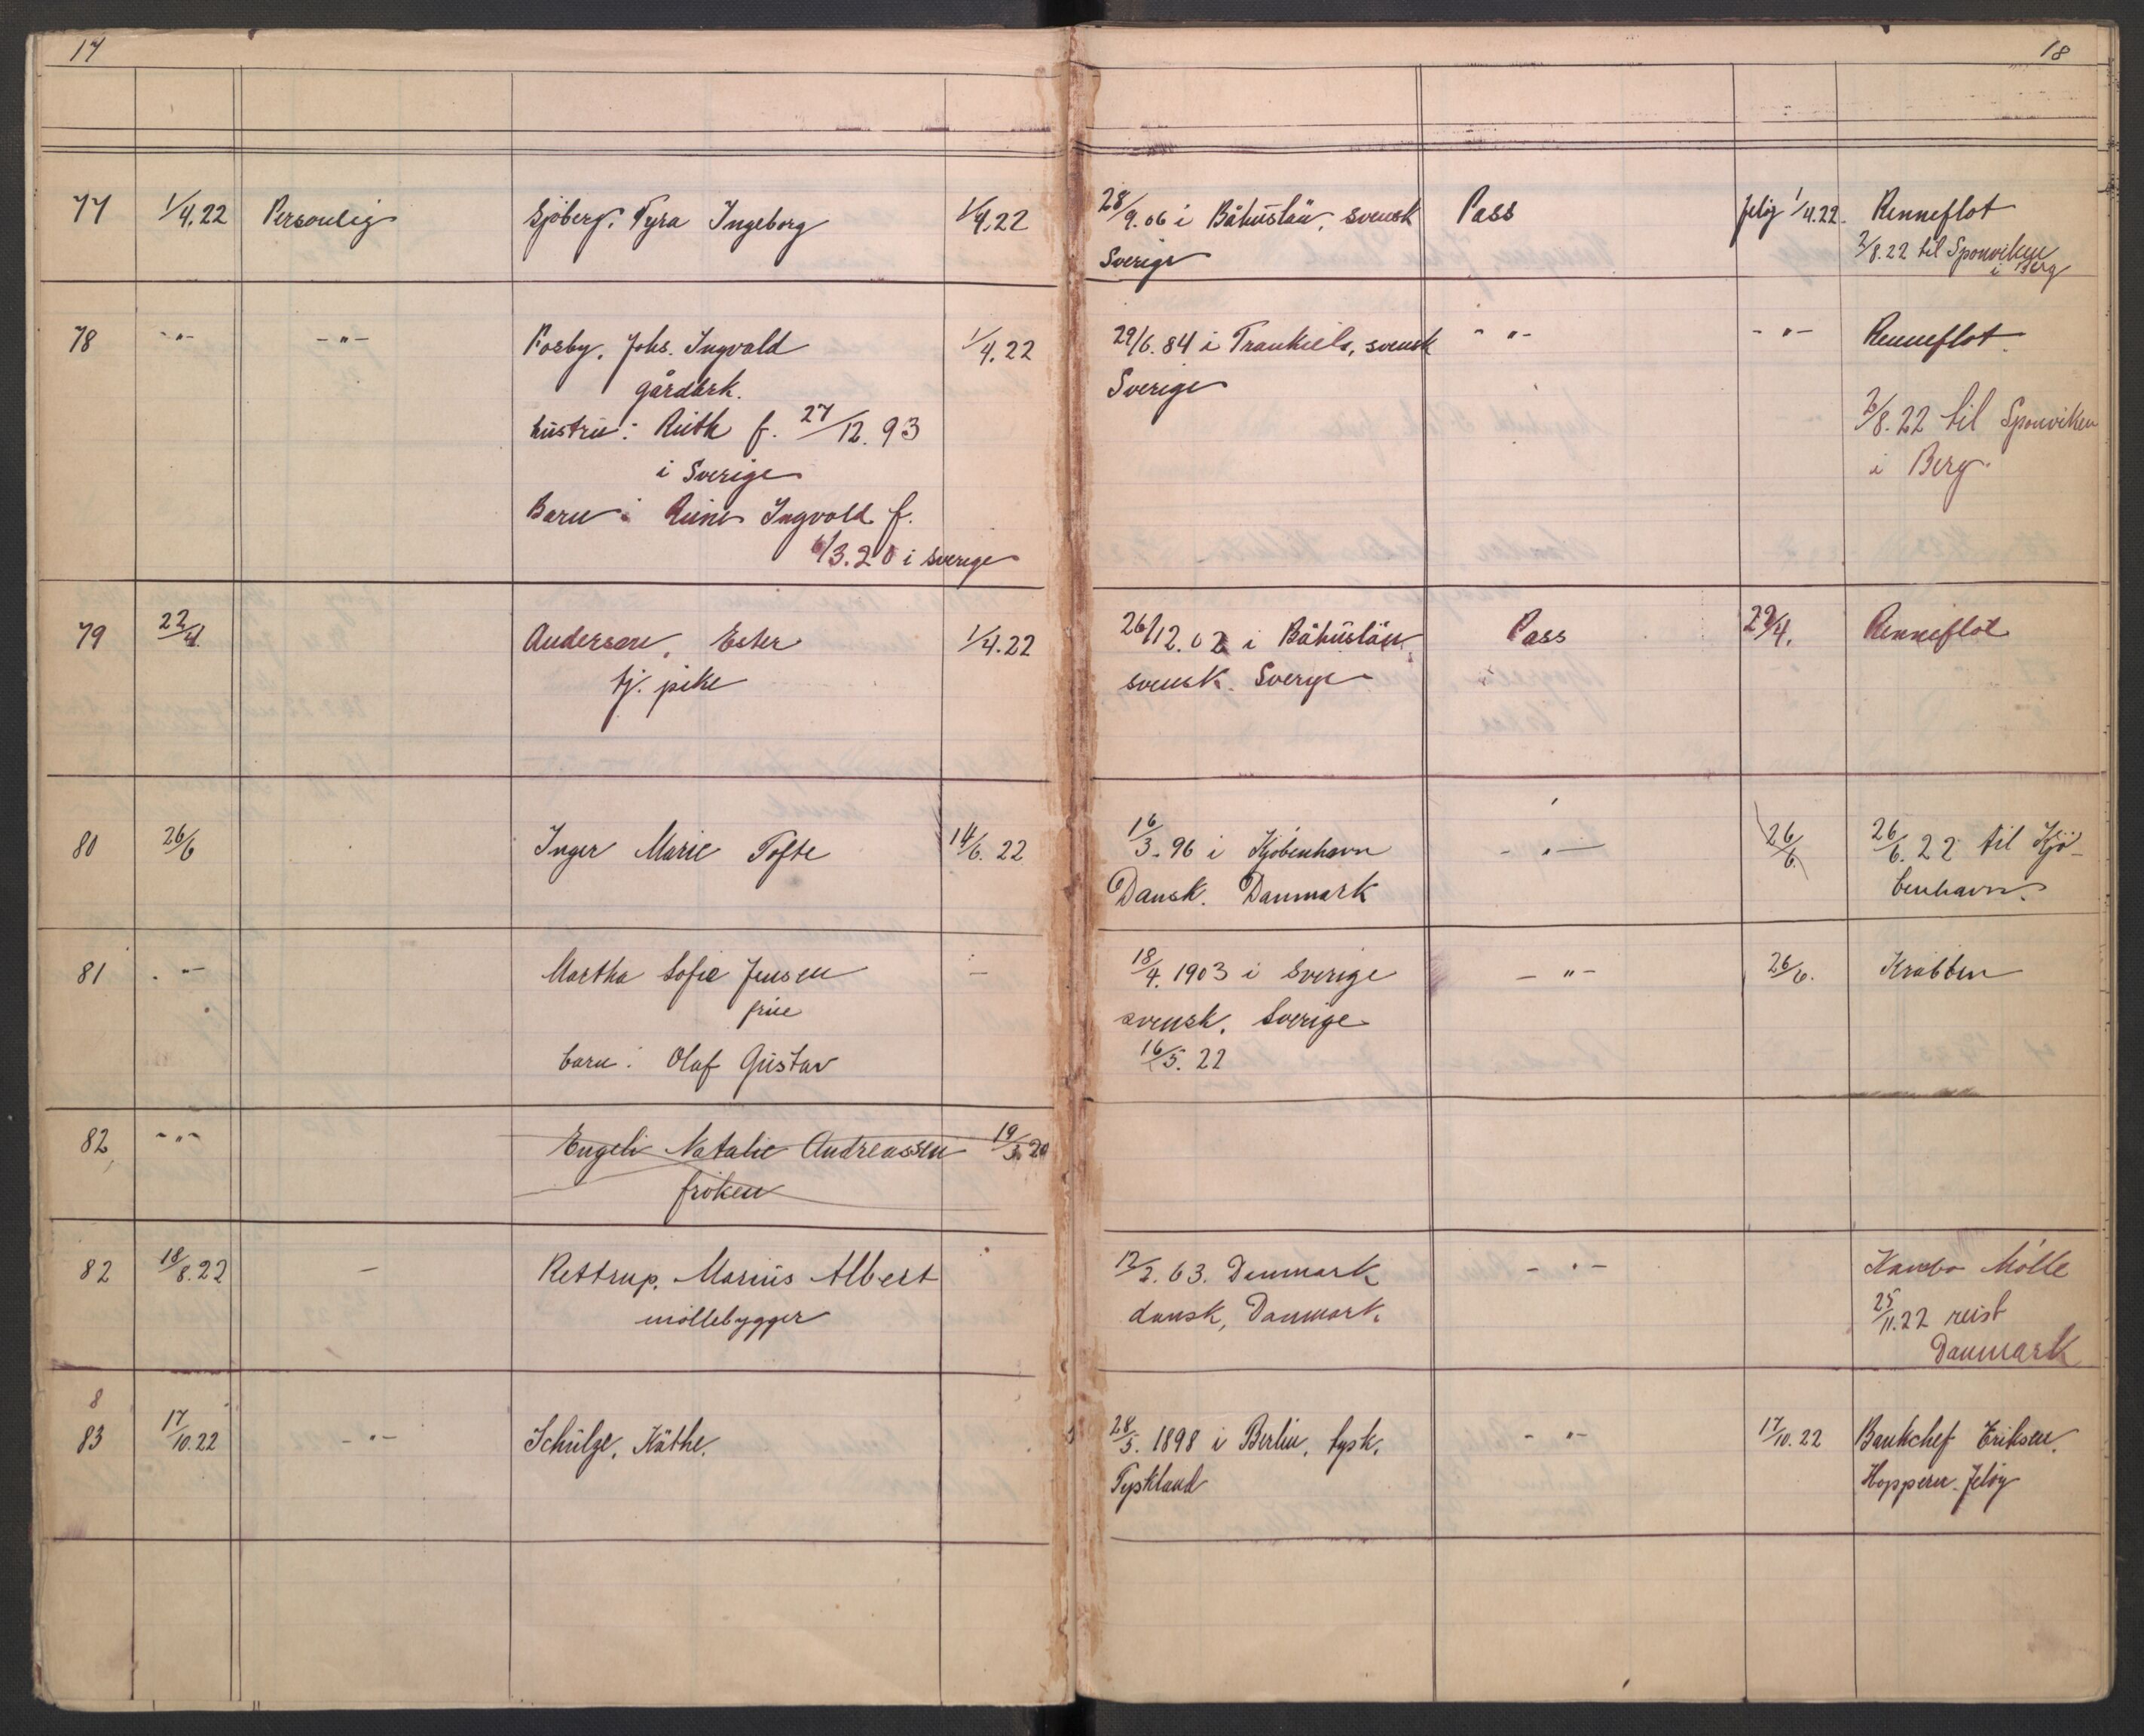 17
18
77 1/4.22 Personlig Sjöberg, Tyra Ingeborg 1/4.22 28/9.06 i Båhuslän, svensk Pass Jeløy 1/4.22. Renneflot
Sverige 2/8.22 til Sponviken
i Berg
78 -"- -"- Kosby, Johs. Ingvald 1/4.22 29/6.84 i Trankiels, svensk -"- -"- Renneflot
gårdbrk. Sverige
hustru: Ruth f. 27/12.93 2/8.22 til Sponviken
i Sverige i Berg.
Barn: Rune Ingvald f.
6/3.20 i Sverige
79 22/4. Anderson, Ester 1/4.22 26/12.02 i Båhuslän Pass 22/4. Renneflot
tj. pike svensk. Sverge
80 26/6 Inger Marie Tofte 14/6.22 16/3.96 i Kjøbenhavn -"- 26/6. 26/6.22 til Kjø-
Dansk. Danmark benhavn.
81 -"- Martha Sofie Jensen - 18/4.1903 i Sverige -"- 26/6. Krabben
frue svensk. Sverige
barn: Olaf Gustav 16/5.22
82 -"- Engeli Natalie Andreassen 19/3.20
frøken
82 18/8.22 - Rettrup, Marius Albert 12/2.63. Danmark -"- Kambo Mølle
møllebygger dansk, Danmark. 25/11.22 reist
Danmark
8
83 17/10.22 -"- Schülze, Käthe. 28/5.1898 i Berlin, tysk. -"- 17/10.22 Bankchef Eriksen.
Tyskland Hoppern. Jeløy